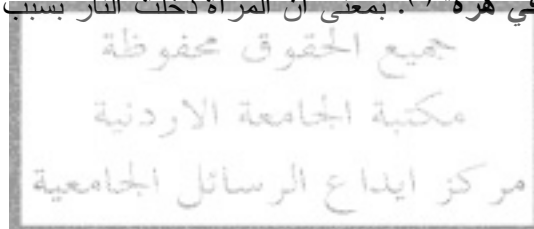 في هرة" (٢). بمعنى أن المرأة دخلت النار بسبب
جميع الحقوق محفوظة
مكتبة الجامعة الاردنية
مركز ايداع الرسائل الجامعية